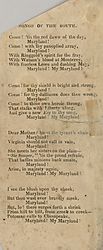 SONGS OF THE SOUTH.
Come! 'tis the red dawn of the day,
Maryland!
Come! with thy panoplied array,
Maryland!
With Ringgold's spirit for the fray,
With Watson's blood at Monterey,
With fearless Lowe and dashing May,
Maryland! My Maryland!
Come! for thy shield is bright and strong,
Maryland!
Come! for thy dalliance does thee wrong,
Maryland!
Come! to thine own heroic throng,
That stalks with Liberty along,
And give a new Key to thy song,
Maryland! My Maryland!
Dear Mother! burst the tyrant's chain,
Maryland!
Virginia should not call in vain,
Maryland!
She meets her sisters on the plain—
"Sic Semper," 'tis the proud refrain,
That baffles minions back amain,
Maryland!
Arise, in majesty again,
Maryland! My Maryland!
I see the blush upon thy cheek,
Maryland!
But thou wast ever bravely meek,
Maryland!
But, lo! there surges forth a shriek
From hill to hill, from creek to creek—
Potomac calls to Chesapeake,
Maryland! My Maryland!